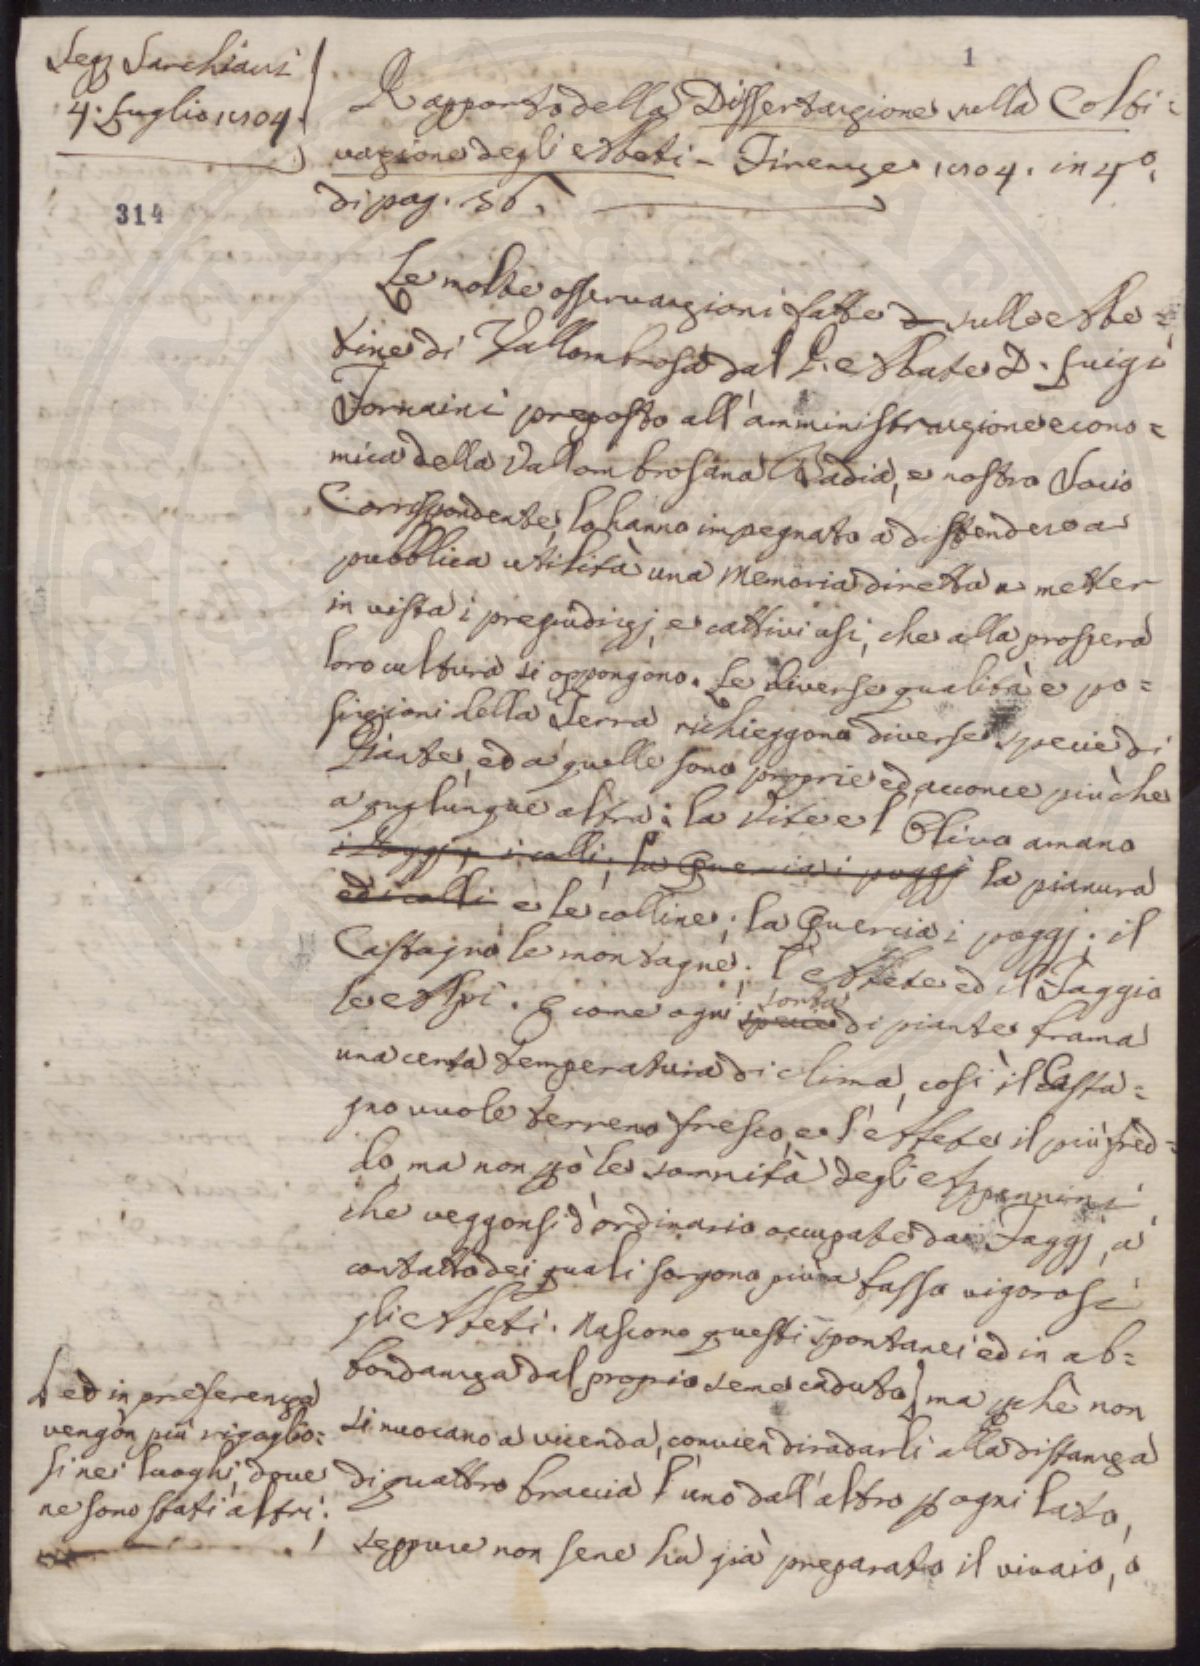 1
Legg. Sarchiani
4. Luglio 1804.
314
Rapporto della Dissertazione sulla Colti=
vazione degli Abeti - Firenze 1804. in 4º.
di pag. 36.
Le molte osservazioni fatte sulle Abe=
tine di Vallombrosa dal P. Abate D. Luigi
Fornaini preposto all'amministrazione econo=
mica della Vallombrosana Badia, e nostro Socio
Corrispondente, lo hanno impegnato a distendere a
pubblica utilità una Memoria diretta a metter
in vista i pregiudizj, e cattivi usi, che alla prospera
loro cultura si oppongono. Le diverse qualità e po=
sizioni della Terra richieggono diverse specie di
Piante, ed a quelle sono proprie ed acconce più che
a qualunque altra: la Vite e l'Olivo amano
i Poggj, i colli; la Quercia i poggj la pianura
ed i colli e le colline; la Quercia i poggj; il
Castagno le montagne; l'Abete ed il Faggio
le Alpi. E come ogni specie sorta di piante brama
una certa temperatura di clima, così il Casta=
gno vuole terreno fresco, e l'Abete il più fred=
do, ma non però le sommità degli Appennini
che veggonsi d'ordinario occupate dai Faggj, a
contatto dei quali sorgono più a basso vigorosi
gli Abeti. Nascono questi spontanei ed in ab=
bondanza dal proprio seme caduto, ma perchè non
si nuocano a vicenda, convien diradarli alla distanza
di quattro braccia l'uno dall'altro per ogni lato,
seppure non se ne ha già preparato il vivaio, o
ed in preferenza
vengon più rigoglio=
si nei luoghi, dove
ne sono stati altri;